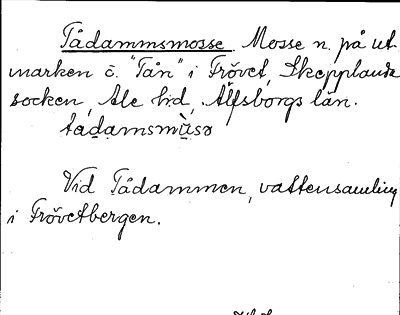 Tådammsmosse. Mosse n. på ut-
marken č. "Tån" i Frövet, Skepplanda
socken, Ale hd, Älfsborgs län.
tådamsmùsə

Vid Tådammen, vattensamling
i Frövetbergen.